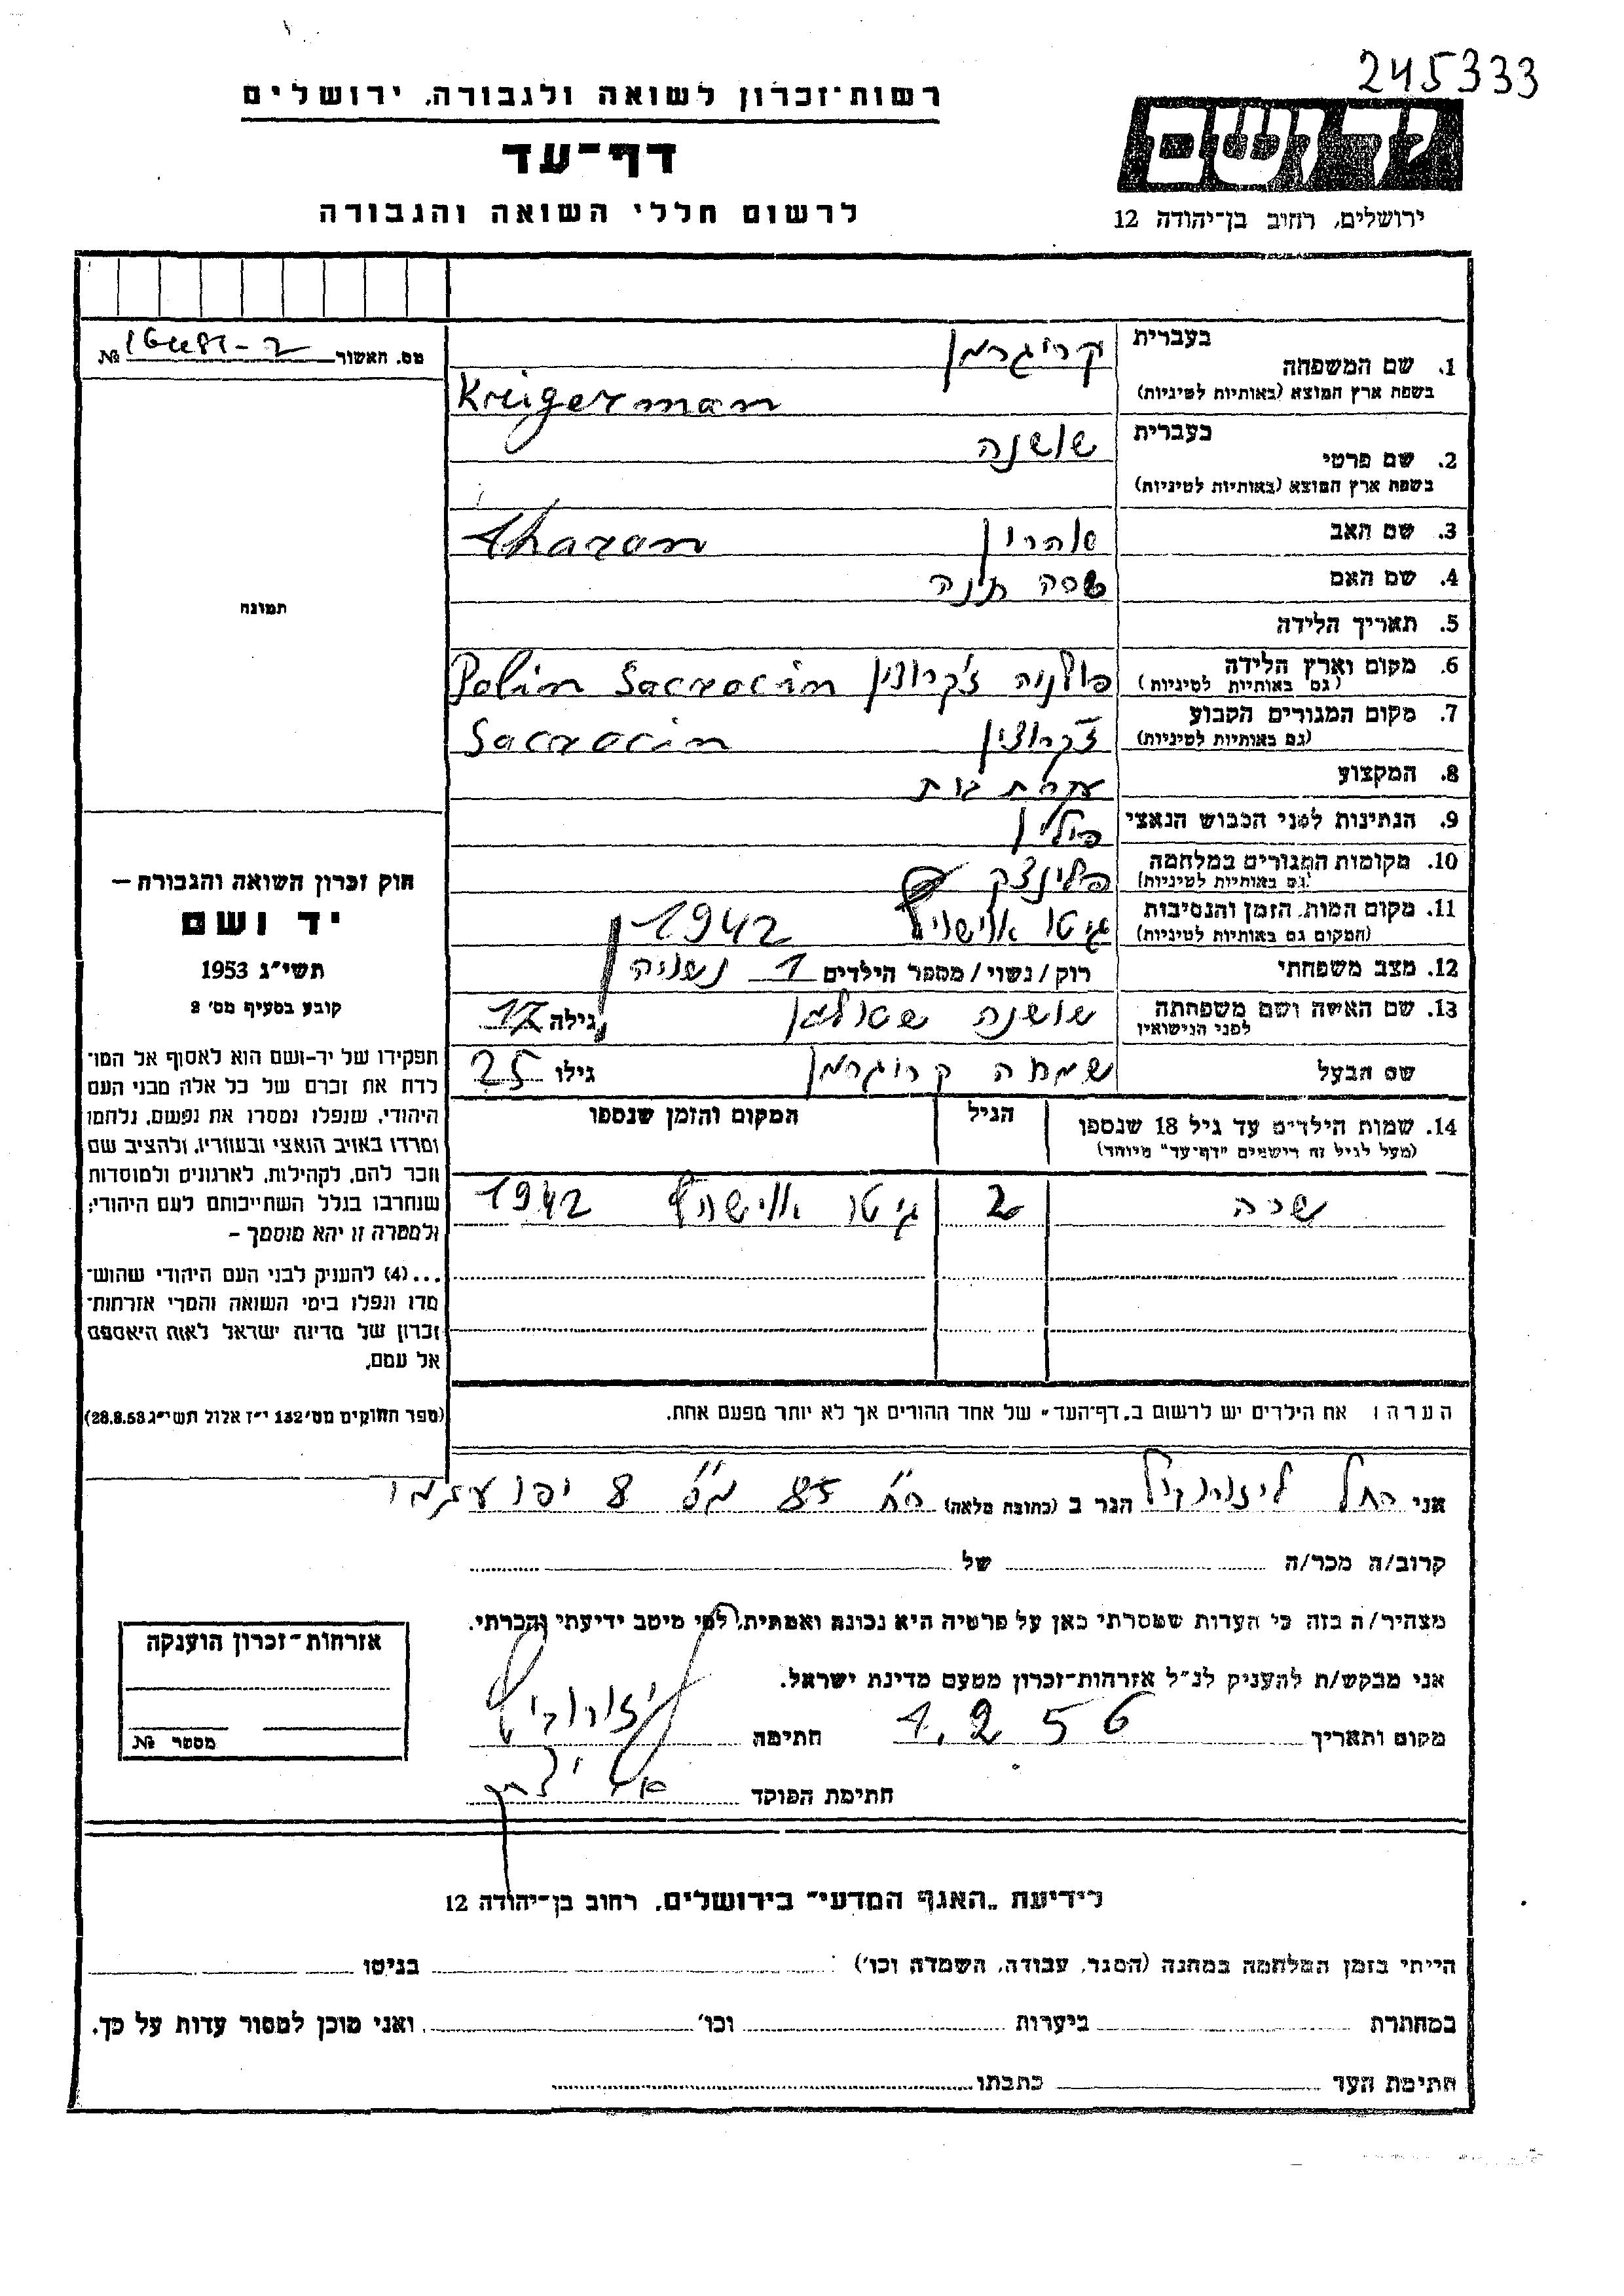 245333
רשות־זכרון לשואה ולגבורה, ירושלים
יד ושם
דף־עד
ירושלים, רחוב בן־יהודה 12
לרשום חללי השואה והגבורה
מס. האשור № 16481-2
1. שם המשפחה
בעברית קריגרמן
בשפת ארץ המוצא (באותיות לטיניות) Krügerman
2. שם פרטי
בעברית שושנה
בשפת ארץ המוצא (באותיות לטיניות)
3. שם האב אהרון Aharon
4. שם האם
5. תאריך הלידה
6. מקום וארץ הלידה
(גם באותיות לטיניות) פולניה Polin Sacrocin
7. מקום המגורים הקבוע
(גם באותיות לטיניות) Sacrocin
8. המקצוע עקרת בית
9. הנתינות לפני הכבוש הנאצי פולין
10. מקומות המגורים במלחמה
(גם באותיות לטיניות)
11. מקום המות, הזמן והנסיבות
(המקום גם באותיות לטיניות) גיטו 1942
12. מצב משפחתי רוק/נשוי/מספר הילדים 1 נשואה
13. שם האשה ושם משפחתה
לפני הנישואין שושנה גילה
שם הבעל שמחה קריגרמן גילו 25
14. שמות הילדים עד גיל 18 שנספו
(מעל לגיל זה רישמים "דף־עד" מיוחד)
הגיל
המקום והזמן שנספו
שרה 2 גיטו 1942
הערה: את הילדים יש לרשום ב„דף־העד" של אחד ההורים אך לא יותר מפעם אחת.
תמונה
חוק זכרון השואה והגבורה —
יד ושם
תשי"ג 1953
קובע בסעיף מס' 2
תפקידו של יד-ושם הוא לאסוף אל המו־
לדת את זכרם של כל אלה מבני העם
היהודי, שנפלו ומסרו את נפשם, נלחמו
ומרדו באויב הנאצי ובעוזריו, ולהציב שם
וזכר להם, לקהילות, לארגונים ולמוסדות
שנחרבו בגלל השתייכותם לעם היהודי;
ולמטרה זו יהא מוסמך –
...(4) להעניק לבני העם היהודי שהוש־
מדו ונפלו בימי השואה והמרי אזרחות־
זכרון של מדינת ישראל לאות היאספם
אל עמם.
(ספר החוקים מס' 132 י"ז אלול תשי"ג 28.8.53)
אני רחל הגר ב (כתובת מלאה) רח' 85 מס' 8 יפו
קרוב/ה מכר/ה של
מצהיר/ה בזה כי העדות שמסרתי כאן על פרטיה היא נכונה ואמתית, לפי מיטב ידיעתי והכרתי.
אני מבקש/ת להעניק לנ"ל אזרחות־זכרון מטעם מדינת ישראל.
מקום ותאריך 1.2 56 חתימה
חתימת הפוקד
אזרחות־זכרון הוענקה
מספר №
לידיעת „האגף המדעי" בירושלים, רחוב בן־יהודה 12
הייתי בזמן המלחמה במחנה (הסגר, עבודה, השמדה וכו') בגיטו
במחתרת ביערות וכו' ואני מוכן למסור עדות על כך.
חתימת העד כתבתו